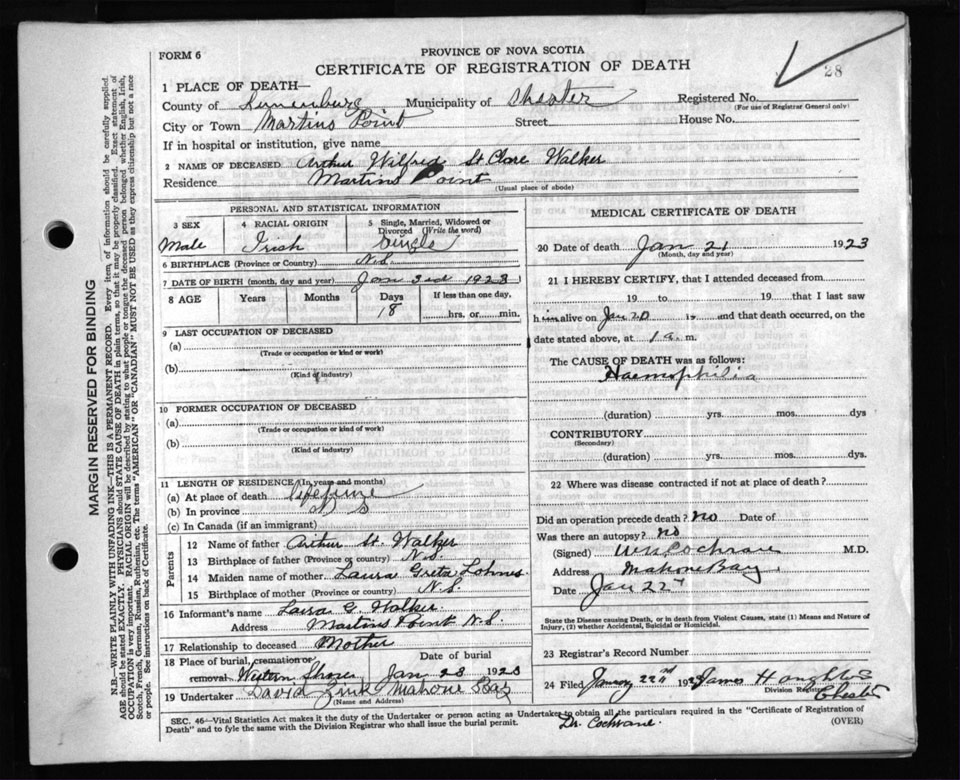 FORM 6
PROVINCE OF NOVA SCOTIA
CERTIFICATE OF REGISTRATION OF DEATH
28
1 PLACE OF DEATH—
County of Lunenburg Municipality of Chester Registered No.
(For use of Registrar General only)
City or Town Martins Point Street House No.
If in hospital or institution, give name
2 NAME OF DECEASED Arthur Wilfred St Clare Walker
Residence Martins Point
(Usual place of abode)
PERSONAL AND STATISTICAL INFORMATION
3 SEX 4 RACIAL ORIGIN 5 Single, Married, Widowed or
Divorced (Write the word)
Male Irish Single
6 BIRTHPLACE (Province or Country) N.S.
7 DATE OF BIRTH (month, day and year) Jan 3rd 1923
8 AGE Years Months Days If less than one day,
18 hrs. or min.
9 LAST OCCUPATION OF DECEASED
(a)
(Trade or occupation or kind or work)
(b)
(Kind of industry)
10 FORMER OCCUPATION OF DECEASED
(a)
(Trade or occupation or kind of work)
(b)
(Kind of industry)
11 LENGTH OF RESIDENCE (In years and months)
(a) At place of death Lifetime
(b) In province
(c) In Canada (if an immigrant)
Parents
12 Name of father Arthur St. Walker
13 Birthplace of father (Province or country) N.S.
14 Maiden name of mother Laura Greta
15 Birthplace of mother (Province or Country) N.S.
16 Informant's name G. Walker
Address Martins Point N.S.
17 Relationship to deceased Mother
18 Place of burial, cremation or Date of burial
removal Western Shore Jan 23 1923
19 Undertaker David Zink Mahone Bay
(Name and Address)
MEDICAL CERTIFICATE OF DEATH
20 Date of death Jan 21 1923
(Month, day and year)
21 I HEREBY CERTIFY, that I attended deceased from
19 to 19 that I last saw
him alive on Jan 20 19 and that death occurred, on the
date stated above, at 1 a. m.
The CAUSE OF DEATH was as follows:
Haemophilia
(duration) yrs. mos. dys
CONTRIBUTORY
(Secondary)
(duration) yrs. mos. dys.
22 Where was disease contracted if not at place of death?
Did an operation precede death? no Date of
Was there an autopsy? no
(Signed) Cochrane M.D.
Address Mahone Bay
Date Jan 22
State the Disease causing Death, or in death from Violent Causes, state (1) Means and Nature of
Injury, (2) whether Accidental, Suicidal or Homicidal.
23 Registrar's Record Number
24 Filed January 22nd 1923 James
Division Registrar
Chester
SEC. 46—Vital Statistics Act makes it the duty of the Undertaker or person acting as Undertaker to obtain all the particulars required in the "Certificate of Registration of
Death" and to fyle the same with the Division Registrar who shall issue the burial permit. Dr. Cochrane. (OVER)
MARGIN RESERVED FOR BINDING
N.B.—WRITE PLAINLY WITH UNFADING INK—THIS IS A PERMANENT RECORD. Every item of information should be carefully supplied.
AGE should be stated EXACTLY. PHYSICIANS should STATE CAUSE OF DEATH in plain terms, so that it may be properly classified. Exact statement of
OCCUPATION is very important. RACIAL ORIGIN will be described by stating to what people or tongue the deceased person belonged, whether English, Irish,
Scotch, French, German, Russian, Ruthenian, etc. The terms "AMERICAN" OR "CANADIAN" MUST NOT BE USED as they express citizenship but not a race
or people. See instructions on back of Certificate.